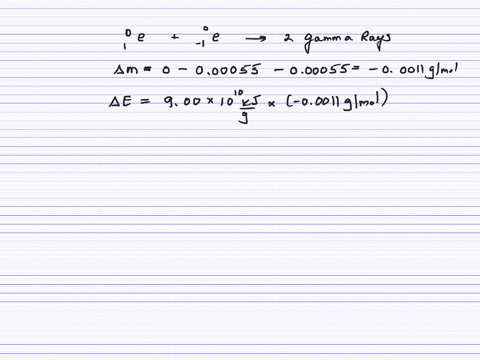 ⁰₁e + ⁰₋₁e → 2 gamma Rays
Δm = 0 - 0.00055 - 0.00055 = -0.0011 g/mol
ΔE = 9.00 × 10¹⁰ kJ/g × (-0.0011 g/mol)